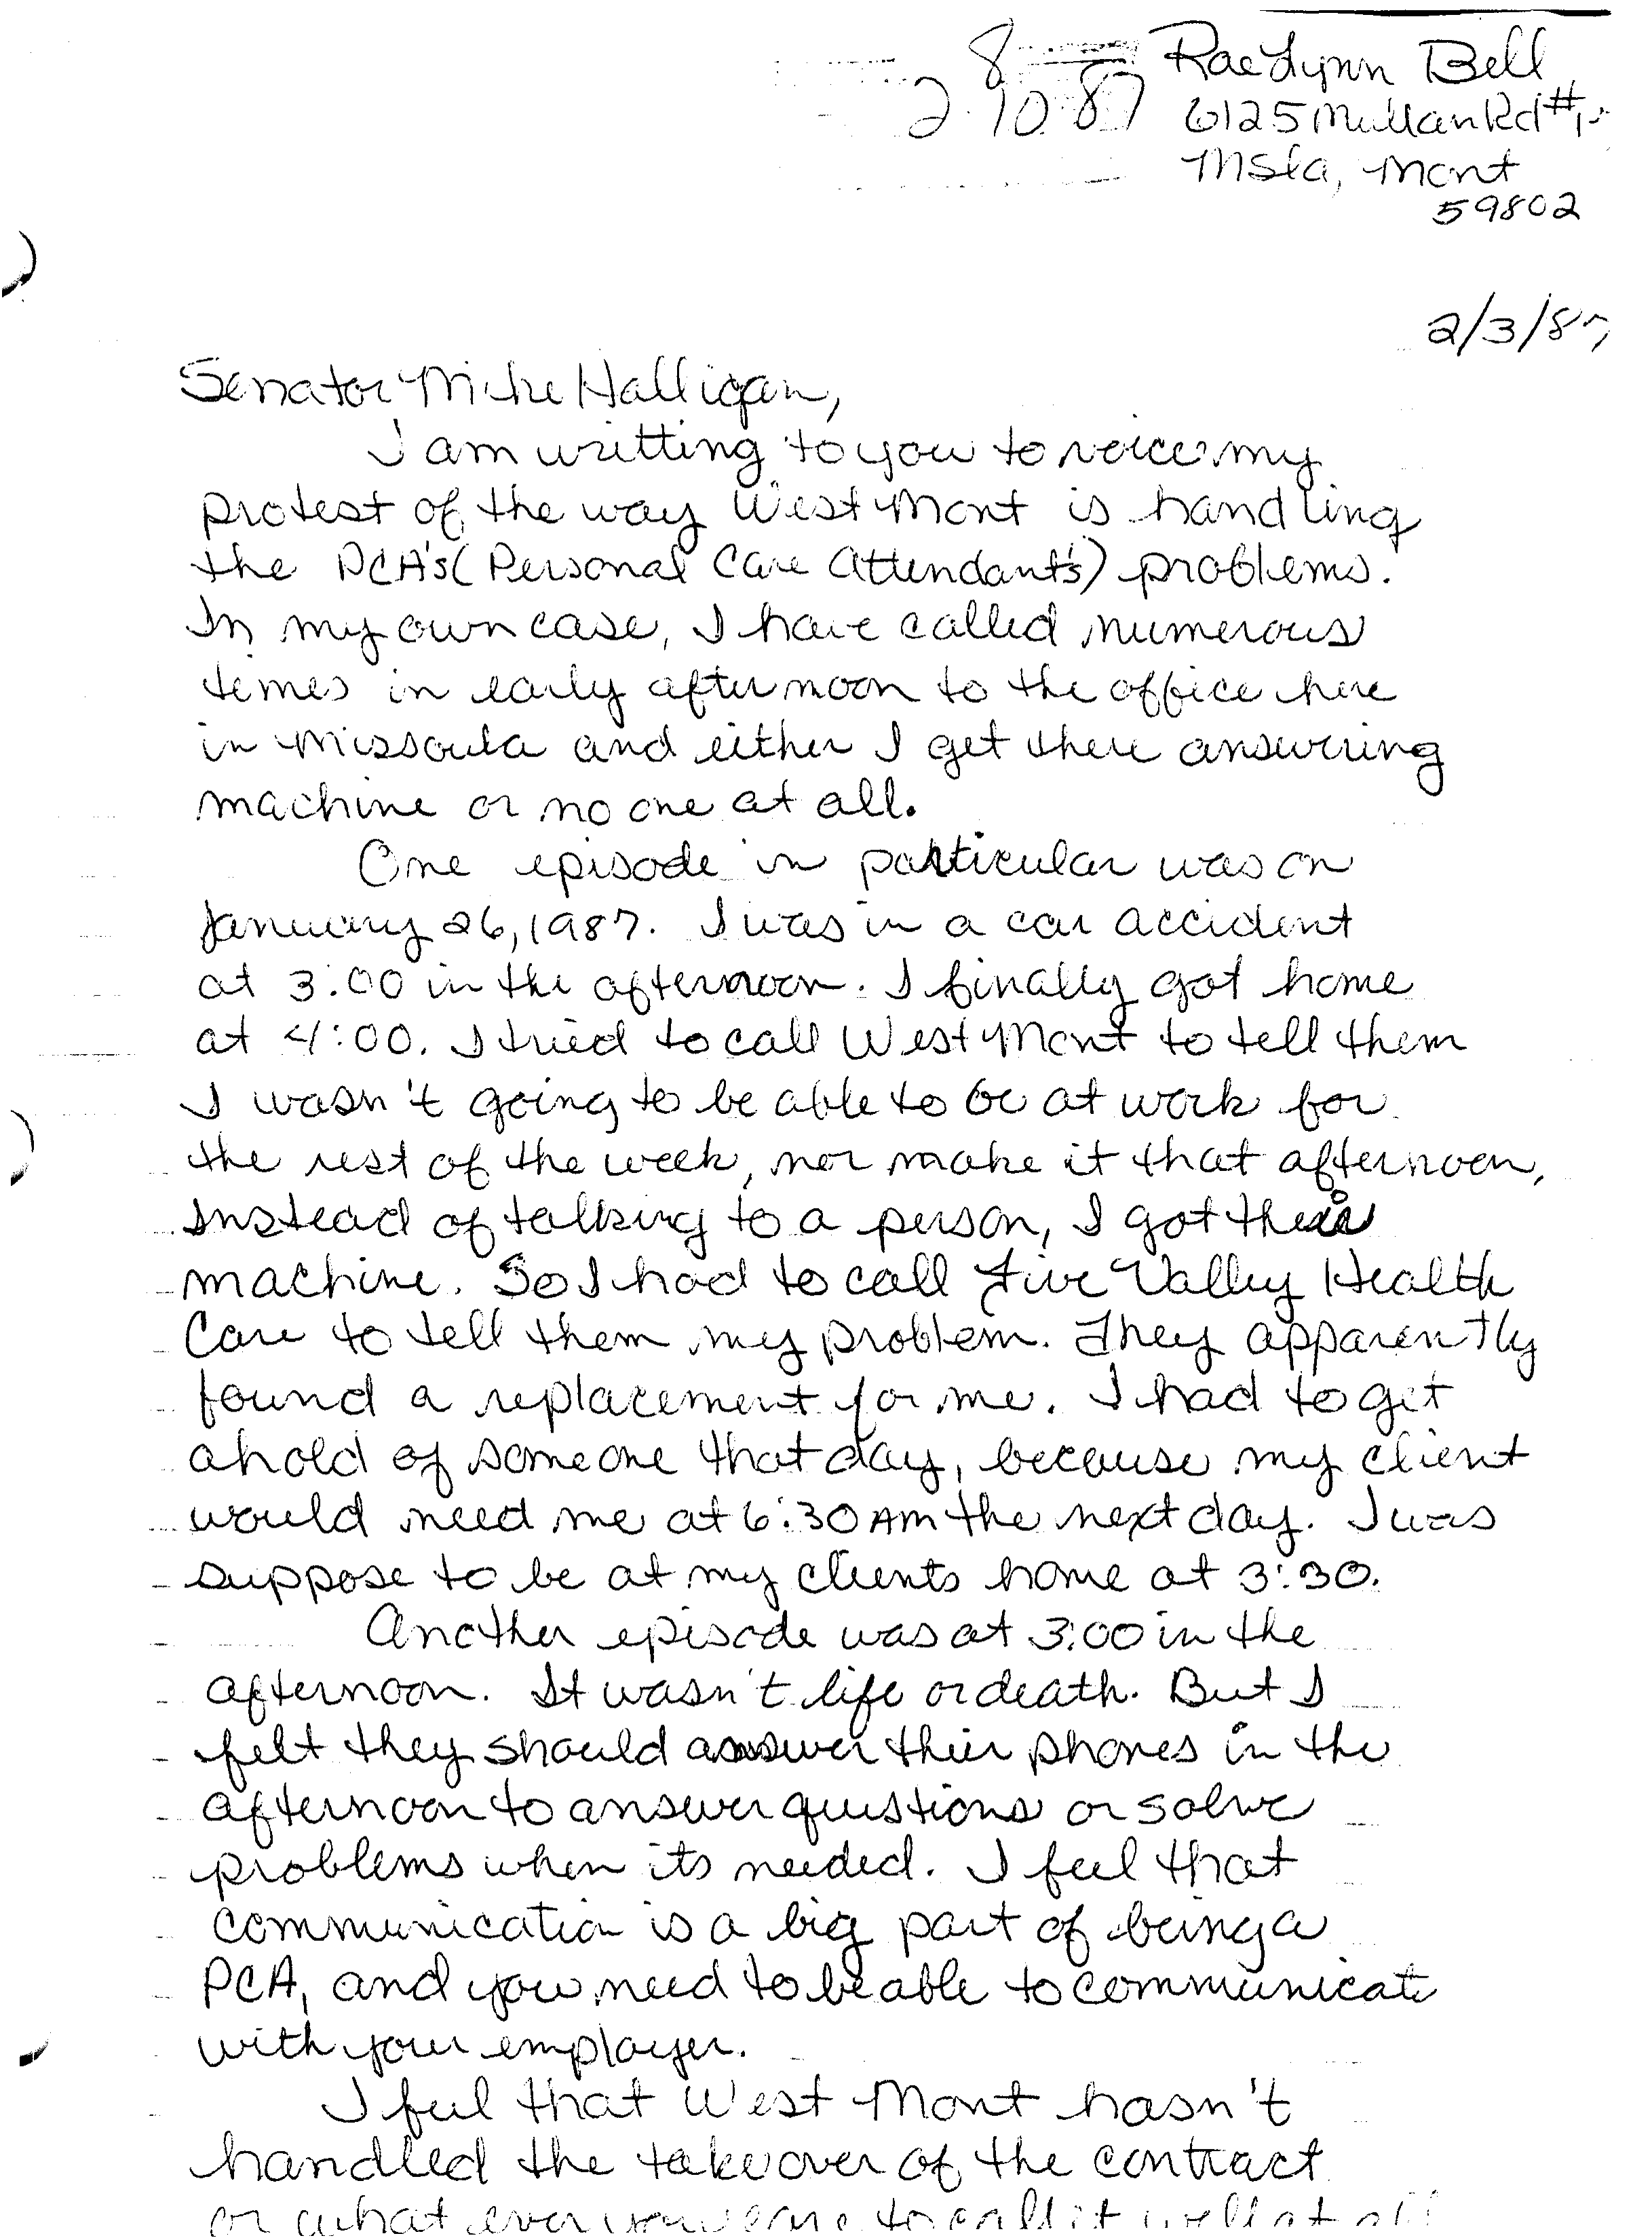 8
2-10-87
RaeLynn Bell
6125 Mullan Rd #1
Msla, Mont
59802
2/3/87
Senator Mike Halligan,
I am writting to you to voice my
protest of the way West Mont is handling
the PCA's (Personal Care Attendant's) problems.
In my own case, I have called numerous
times in early afternoon to the office here
in Missoula and either I get there answering
machine or no one at all.
One episode in particular was on
January 26, 1987. I was in a car accident
at 3:00 in the afternoon. I finally got home
at 4:00. I tried to call West Mont to tell them
I wasn't going to be able to be at work for
the rest of the week, nor make it that afternoon,
Instead of talking to a person, I got their
machine. So I had to call Five Valley Health
Care to tell them my problem. They apparently
found a replacement for me. I had to get
ahold of someone that day, because my client
would need me at 6:30 AM the next day. I was
suppose to be at my clients home at 3:30.
Another episode was at 3:00 in the
afternoon. It wasn't life or death. But I
felt they should answer their phones in the
afternoon to answer questions or solve
problems when its needed. I feel that
communication is a big part of being a
PCA, and you need to be able to communicate
with your employer.
I feel that West Mont hasn't
handled the takeover of the contract
or what ever you care to call it well at all